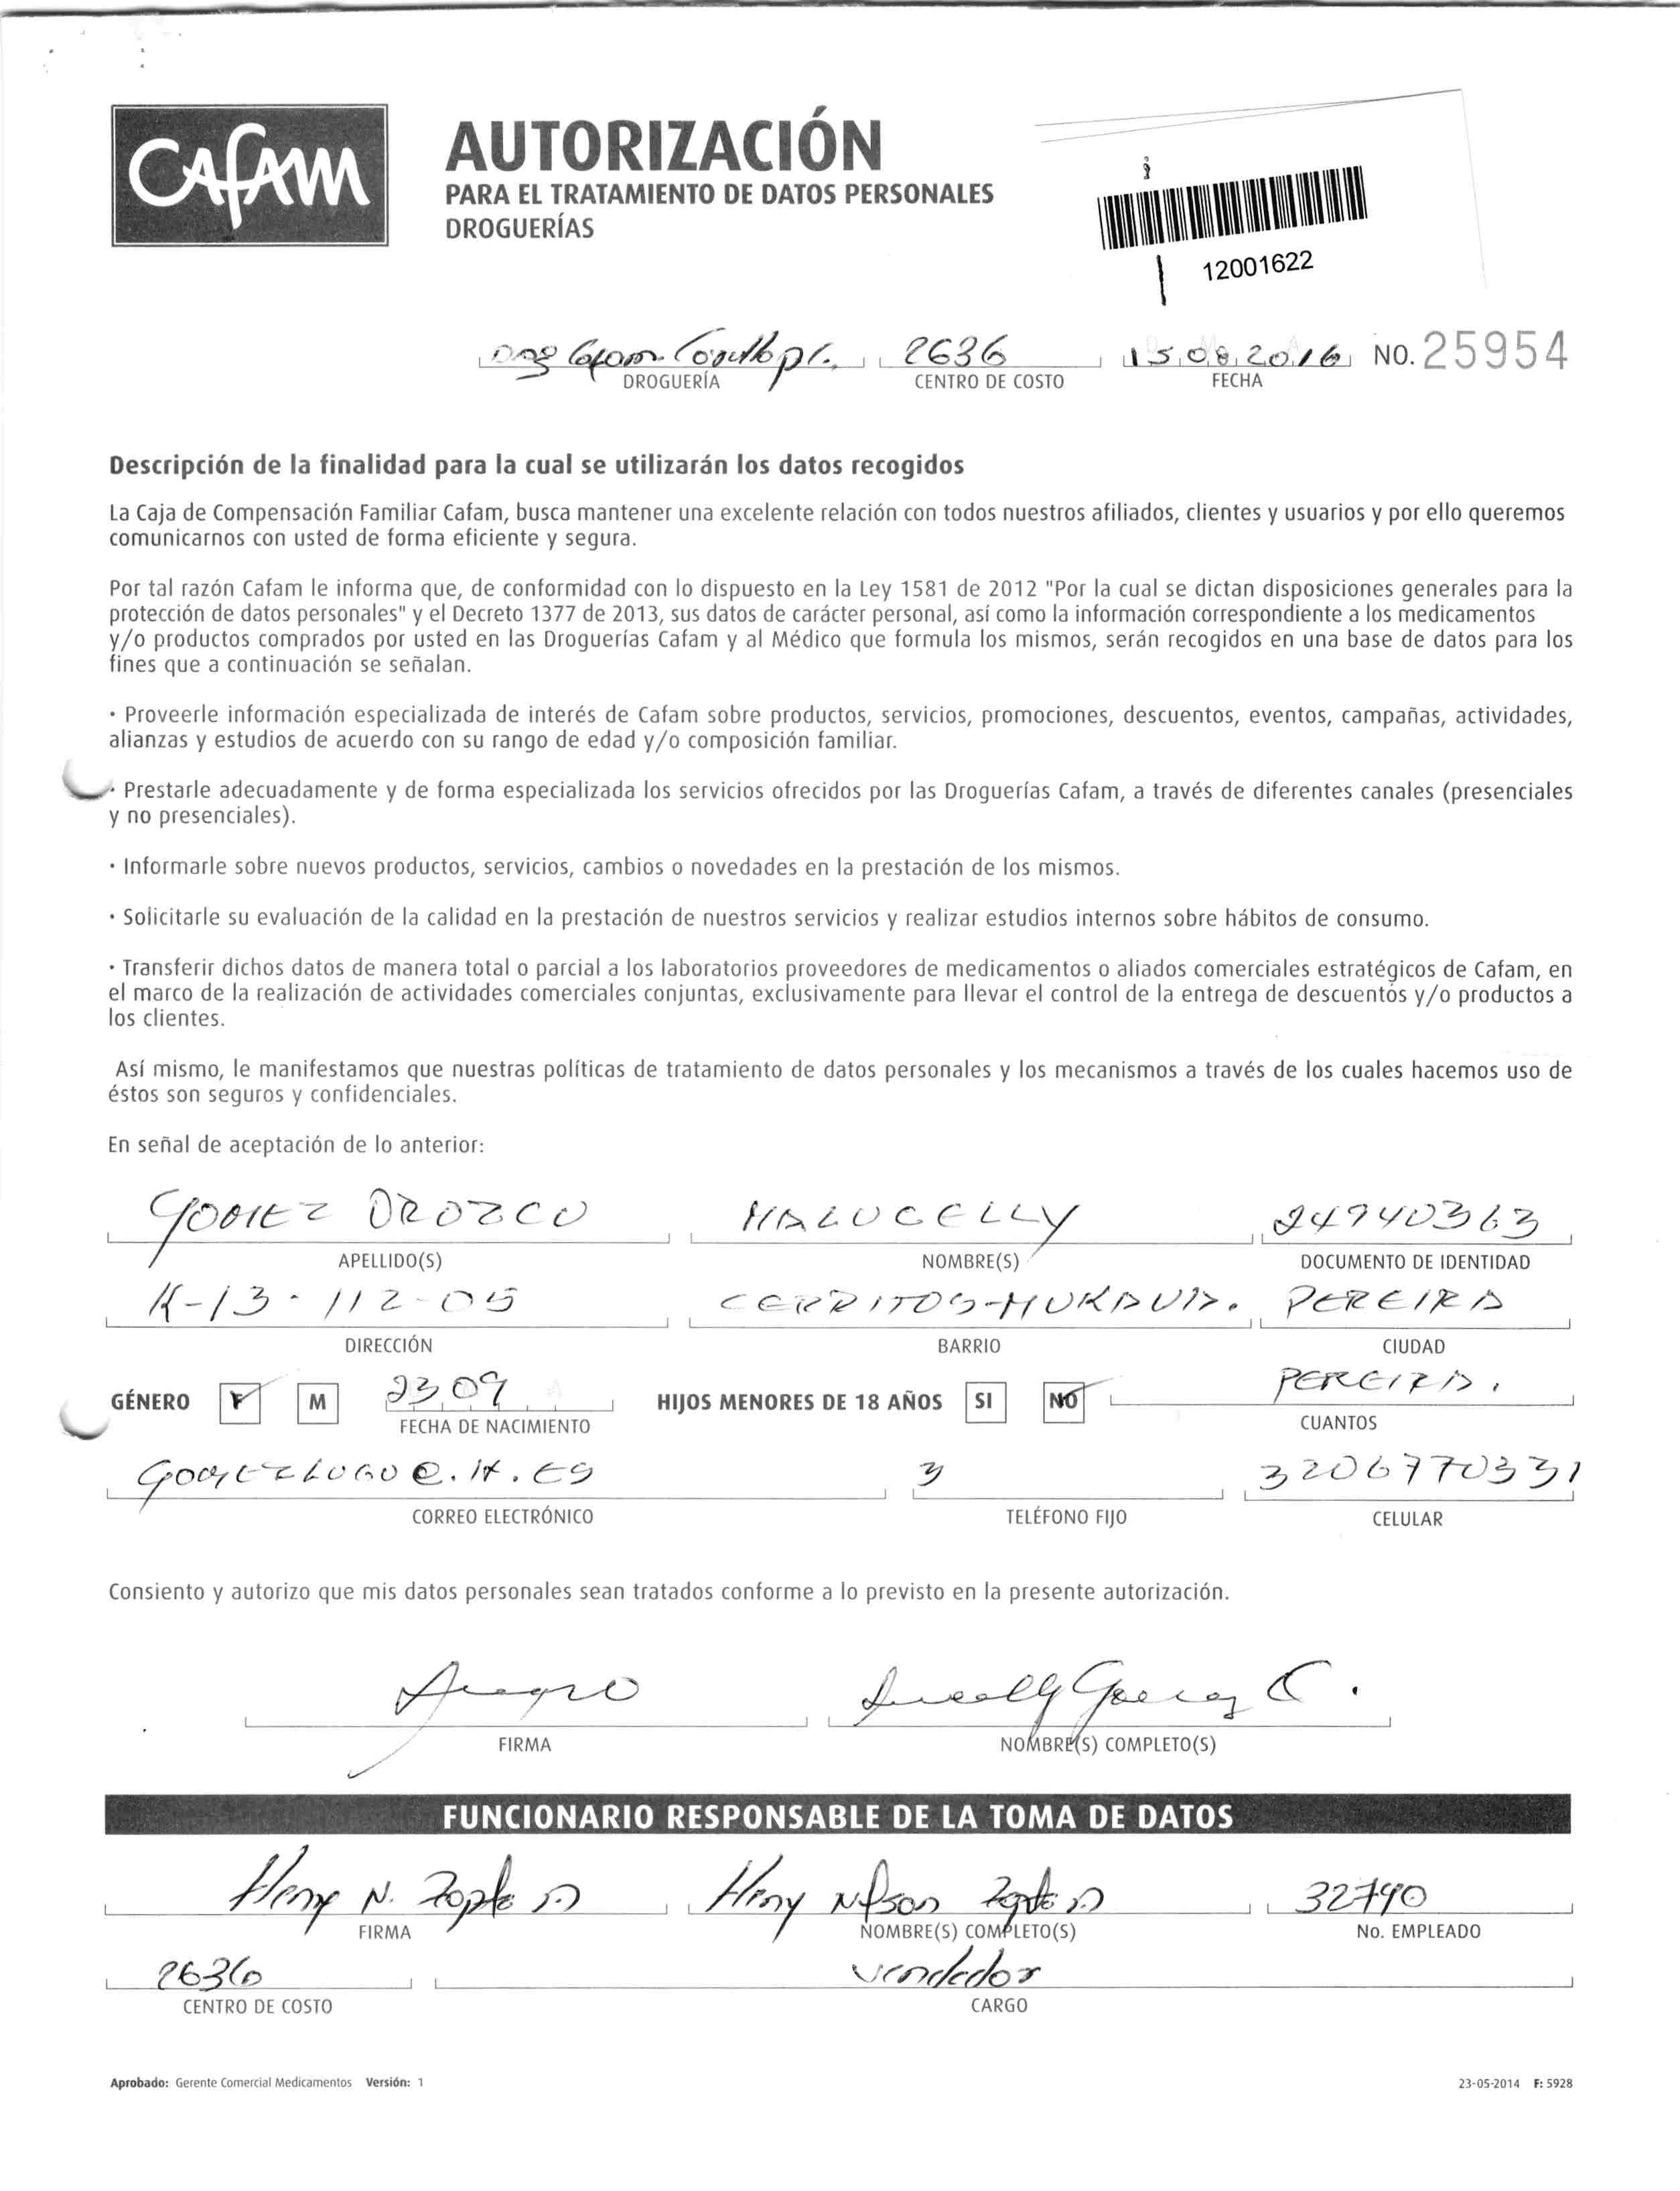 CAFAM
AUTORIZACIÓN
PARA EL TRATAMIENTO DE DATOS PERSONALES
DROGUERÍAS
12001622
2636 15 08 2016 NO. 25954
DROGUERÍA CENTRO DE COSTO FECHA
Descripción de la finalidad para la cual se utilizarán los datos recogidos
La Caja de Compensación Familiar Cafam, busca mantener una excelente relación con todos nuestros afiliados, clientes y usuarios y por ello queremos
comunicarnos con usted de forma eficiente y segura.
Por tal razón Cafam le informa que, de conformidad con lo dispuesto en la Ley 1581 de 2012 "Por la cual se dictan disposiciones generales para la
protección de datos personales" y el Decreto 1377 de 2013, sus datos de carácter personal, así como la información correspondiente a los medicamentos
y/o productos comprados por usted en las Droguerías Cafam y al Médico que formula los mismos, serán recogidos en una base de datos para los
fines que a continuación se señalan.
· Proveerle información especializada de interés de Cafam sobre productos, servicios, promociones, descuentos, eventos, campañas, actividades,
alianzas y estudios de acuerdo con su rango de edad y/o composición familiar.
· Prestarle adecuadamente y de forma especializada los servicios ofrecidos por las Droguerías Cafam, a través de diferentes canales (presenciales
y no presenciales).
· Informarle sobre nuevos productos, servicios, cambios o novedades en la prestación de los mismos.
· Solicitarle su evaluación de la calidad en la prestación de nuestros servicios y realizar estudios internos sobre hábitos de consumo.
· Transferir dichos datos de manera total o parcial a los laboratorios proveedores de medicamentos o aliados comerciales estratégicos de Cafam, en
el marco de la realización de actividades comerciales conjuntas, exclusivamente para llevar el control de la entrega de descuentos y/o productos a
los clientes.
Así mismo, le manifestamos que nuestras políticas de tratamiento de datos personales y los mecanismos a través de los cuales hacemos uso de
éstos son seguros y confidenciales.
En señal de aceptación de lo anterior:
GOMEZ OROZCO MALUCELLY 24940363
APELLIDO(S) NOMBRE(S) DOCUMENTO DE IDENTIDAD
K-13-112-05 CERRITOS- PEREIRA
DIRECCIÓN BARRIO CIUDAD
GÉNERO F M 23 09 HIJOS MENORES DE 18 AÑOS SI NO PEREIRA.
FECHA DE NACIMIENTO CUANTOS
3 3206770331
CORREO ELECTRÓNICO TELÉFONO FIJO CELULAR
Consiento y autorizo que mis datos personales sean tratados conforme a lo previsto en la presente autorización.
FIRMA NOMBRE(S) COMPLETO(S)
FUNCIONARIO RESPONSABLE DE LA TOMA DE DATOS
Heny N. Heny Nelson 32790
FIRMA NOMBRE(S) COMPLETO(S) No. EMPLEADO
2636 vendedor
CENTRO DE COSTO CARGO
Aprobado: Gerente Comercial Medicamentos Versión: 1 23-05-2014 F: 5928